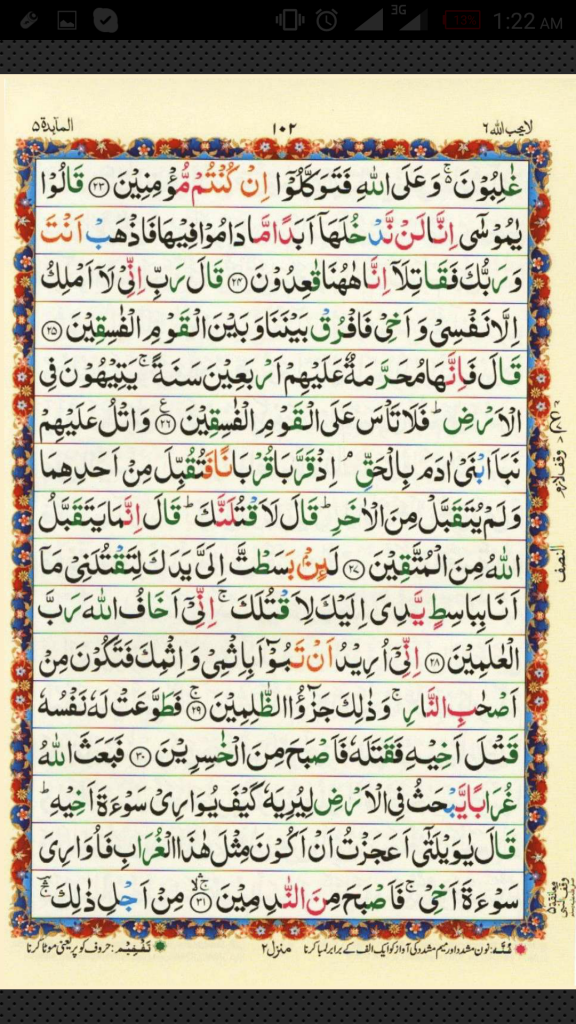 3G
1:22 AM
لايحب الله ٦
١٠٢
المآىدة ٥
غٰلِبُوْنَ ۬ۚ وَعَلَى اللّٰهِ فَتَوَكَّلُوْۤا اِنْ كُنْتُمْ مُّؤْمِنِيْنَ ﴿۲۳﴾ قَالُوْا
يٰمُوْسٰۤى اِنَّا لَنْ نَّدْخُلَهَاۤ اَبَدًا مَّا دَامُوْا فِيْهَا فَاذْهَبْ اَنْتَ
وَرَبُّكَ فَقَاتِلَاۤ اِنَّا هٰهُنَا قٰعِدُوْنَ ﴿۲۴﴾ قَالَ رَبِّ اِنِّىْ لَاۤ اَمْلِكُ
اِلَّا نَفْسِىْ وَاَخِىْ فَافْرُقْ بَيْنَنَا وَبَيْنَ الْقَوْمِ الْفٰسِقِيْنَ ﴿۲۵﴾
قَالَ فَاِنَّهَا مُحَرَّمَةٌ عَلَيْهِمْ اَرْبَعِيْنَ سَنَةً ۚ يَتِيْهُوْنَ فِى
الْاَرْضِ ؕ فَلَا تَاْسَ عَلَى الْقَوْمِ الْفٰسِقِيْنَ ﴿۲۶﴾ ع وَاتْلُ عَلَيْهِمْ
نَبَاَ ابْنَىْ اٰدَمَ بِالْحَقِّ ۘ اِذْ قَرَّبَا قُرْبَانًا فَتُقُبِّلَ مِنْ اَحَدِهِمَا
وَلَمْ يُتَقَبَّلْ مِنَ الْاٰخَرِ ؕ قَالَ لَاَقْتُلَنَّكَ ؕ قَالَ اِنَّمَا يَتَقَبَّلُ
اللّٰهُ مِنَ الْمُتَّقِيْنَ ﴿۲۷﴾ لَئِنْۢ بَسَطْتَّ اِلَىَّ يَدَكَ لِتَقْتُلَنِىْ مَاۤ
اَنَا بِبَاسِطٍ يَّدِىَ اِلَيْكَ لِاَقْتُلَكَ ۚ اِنِّىْۤ اَخَافُ اللّٰهَ رَبَّ
الْعٰلَمِيْنَ ﴿۲۸﴾ اِنِّىْۤ اُرِيْدُ اَنْ تَبُوْٓاَ بِاِثْمِىْ وَاِثْمِكَ فَتَكُوْنَ مِنْ
اَصْحٰبِ النَّارِ ۚ وَذٰلِكَ جَزٰٓؤُا الظّٰلِمِيْنَ ﴿۲۹﴾ ۚ فَطَوَّعَتْ لَهٗ نَفْسُهٗ
قَتْلَ اَخِيْهِ فَقَتَلَهٗ فَاَصْبَحَ مِنَ الْخٰسِرِيْنَ ﴿۳۰﴾ فَبَعَثَ اللّٰهُ
غُرَابًا يَّبْحَثُ فِى الْاَرْضِ لِيُرِيَهٗ كَيْفَ يُوَارِىْ سَوْءَةَ اَخِيْهِ ؕ
قَالَ يٰوَيْلَتٰٓى اَعَجَزْتُ اَنْ اَكُوْنَ مِثْلَ هٰذَا الْغُرَابِ فَاُوَارِىَ
سَوْءَةَ اَخِىْ ۚ فَاَصْبَحَ مِنَ النّٰدِمِيْنَ ﴿۳۱﴾ مِنْ اَجْلِ ذٰلِكَ ۛؔ
وقف لازم
النصف
غُنَّه : نون مشدد اور میم مشدد کی آواز کو ایک الف کے برابر لمبا کرنا
منزل ۲
تَفْخِيْم : حروف کو پُر یعنی موٹا کرنا